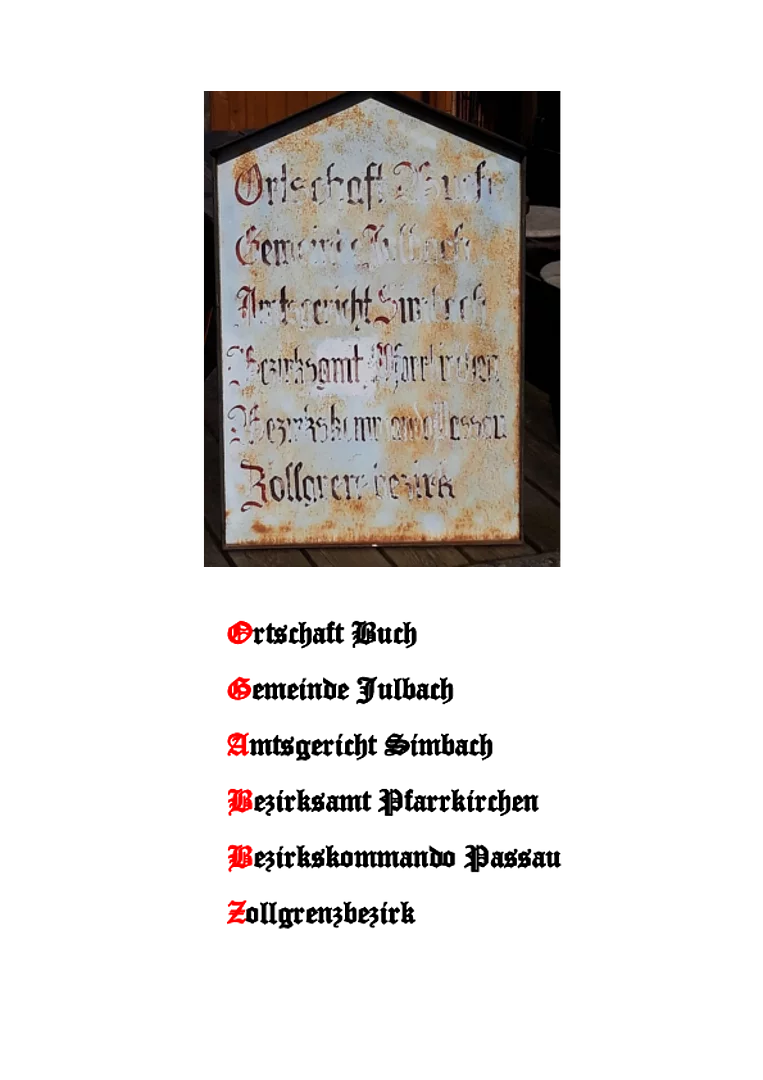 Ortschaft Buch
Gemeinde Julbach
Amtsgericht Simbach
Bezirksamt Pfarrkirchen
Bezirkskommando Passau
Zollgrenzbezirk
Ortschaft Buch
Gemeinde Julbach
Amtsgericht Simbach
Bezirksamt Pfarrkirchen
Bezirkskommando Passau
Zollgrenzbezirk